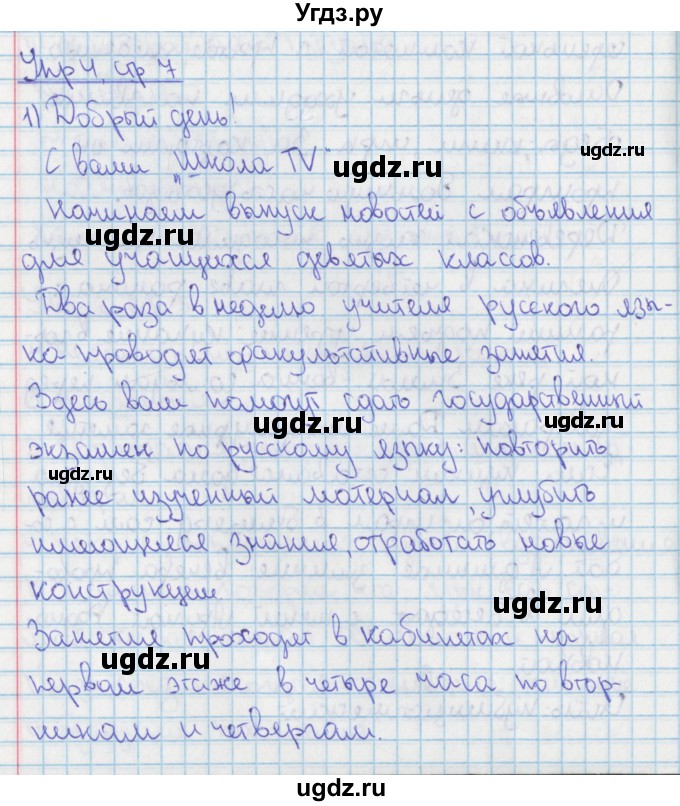 Угдз.ру
Упр 4, стр 7
1) Добрый день!
ugdz.ru
С вами „Школа TV"
ugdz.ru
Начинаем выпуск новостей с объявления
ugdz.ru
для учащихся девятых классов.
Два раза в неделю учителя русского язы-
ugdz.ru
ка проводят факультативные занятия.
Здесь вам помогут сдать государственный
ugdz.ru
экзамен по русскому языку: повторить
ugdz.ru
ранее изученный материал, углубить
имеющиеся знания, отработать новые
конструкции.
ugdz.ru
Занятия проходят в кабинетах на
ugdz.ru
первом этаже в четыре часа по втор-
ugdz.ru
никам и четвергам.
ugdz.ru